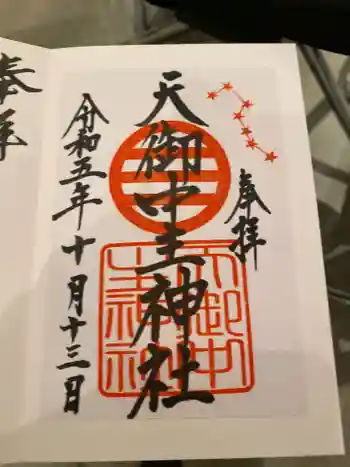 奉拝
天御中主神社
令和五年十月十三日
天御中
主神社
奉拝